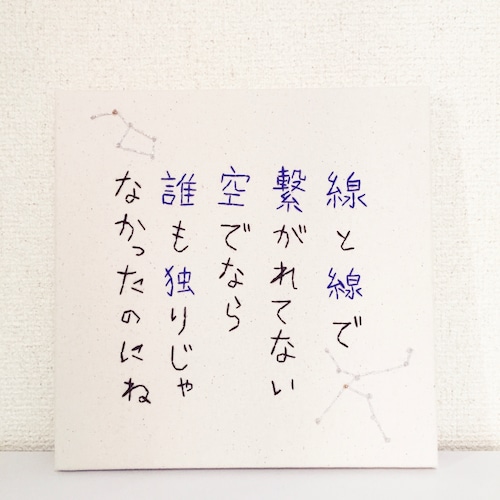 線と線で
繋がれてない
空でなら
誰も独りじゃ
なかったのにね